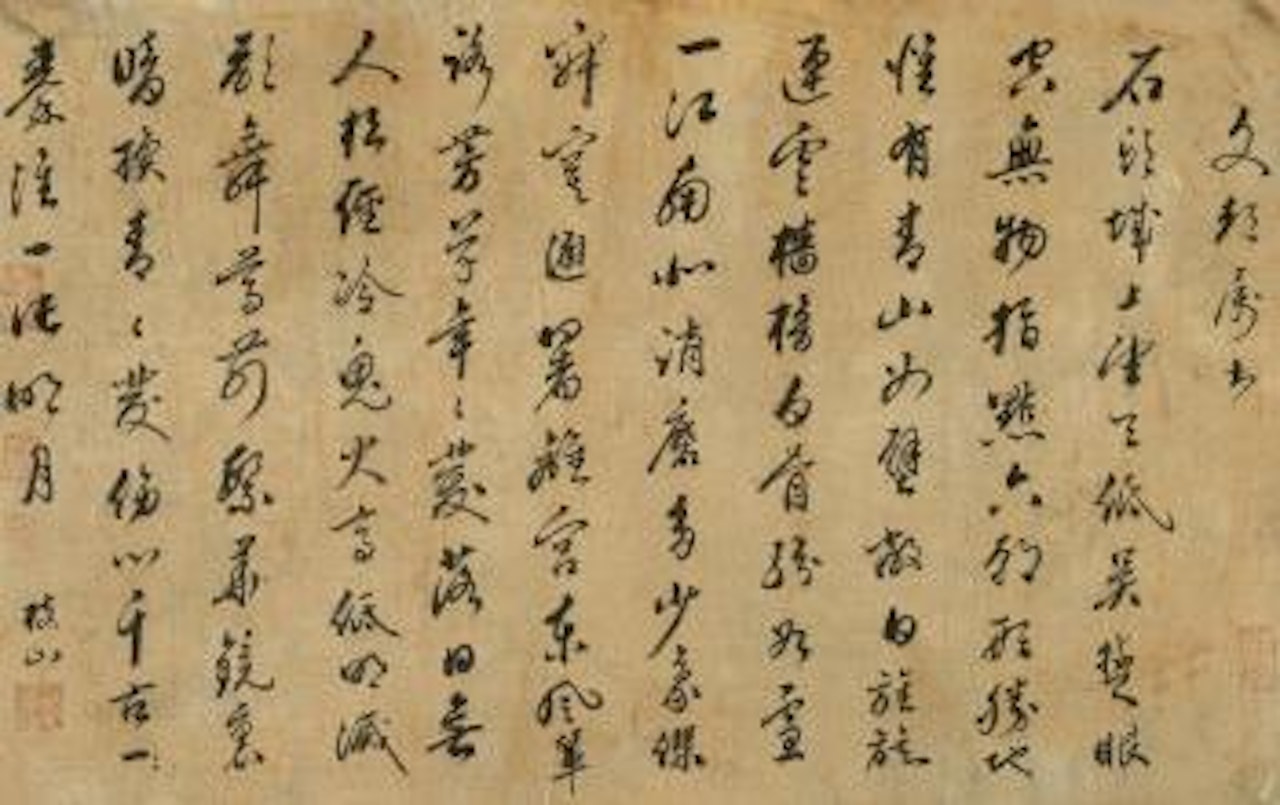 石頭城上望天低吳楚眼
空無物指點六朝形勝地
惟有青山如壁蔽日旌旗
連雲檣櫓白骨紛如雪
一江南北消磨多少豪傑
寂寞避暑離宮東風輦
路芳草年々發落日無
人松徑冷鬼火高低明滅
歌舞尊前繁華鏡裏
暗換青々髮傷心千古一
秦淮一片明月
枝山